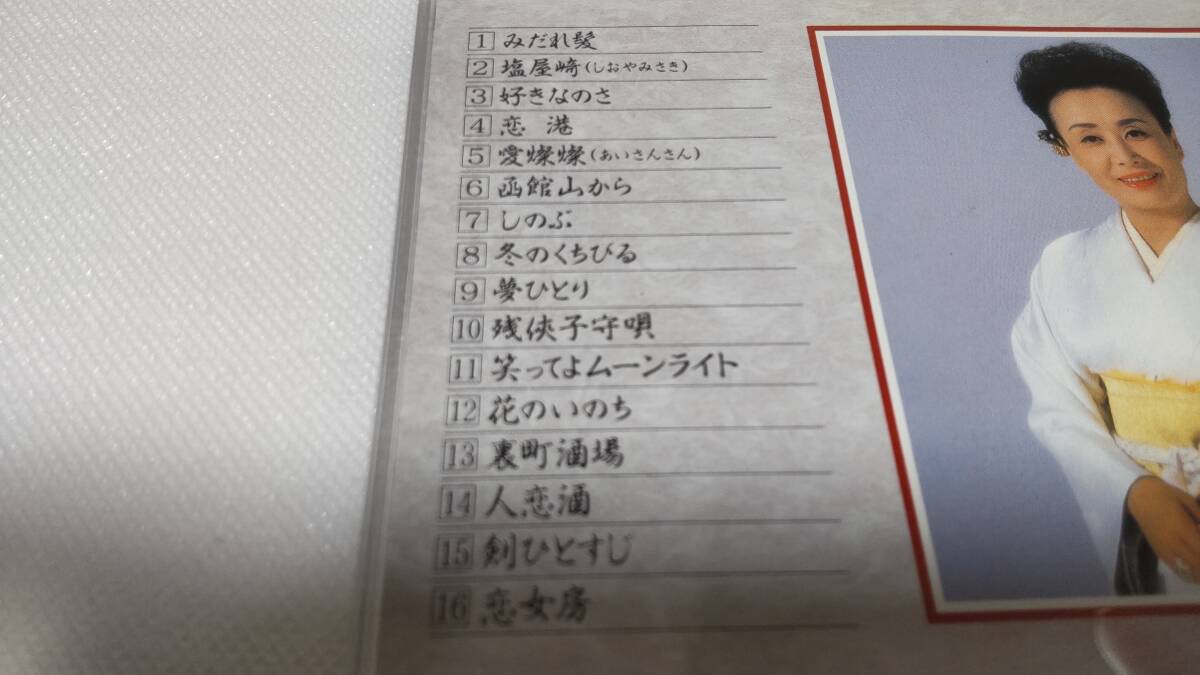 1 みだれ髪
2 塩屋崎(しおやみさき)
3 好きなのさ
4 恋港
5 愛燦燦(あいさんさん)
6 函館山から
7 しのぶ
8 冬のくちびる
9 夢ひとり
10 残侠子守唄
11 笑ってよムーンライト
12 花のいのち
13 裏町酒場
14 人恋酒
15 剣ひとすじ
16 恋女房